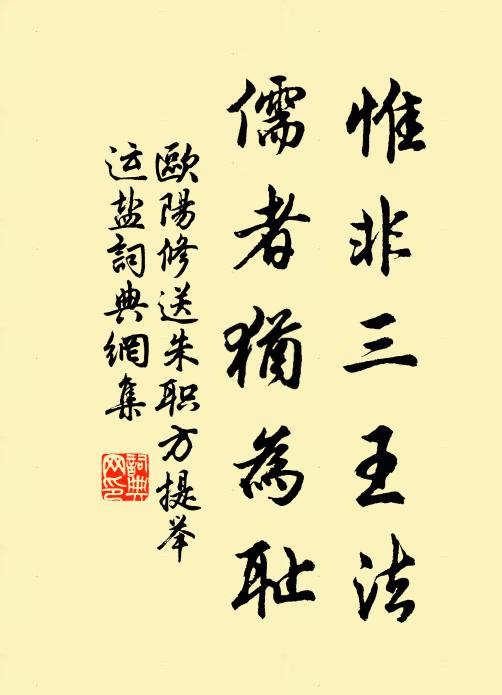 惟非三王法
儒者猶為耻
歐陽修送朱职方提举
运盐詞典網集
詞典
网印